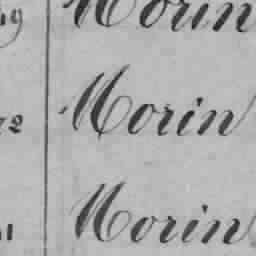 49 Morin
72 Morin
41 Morin